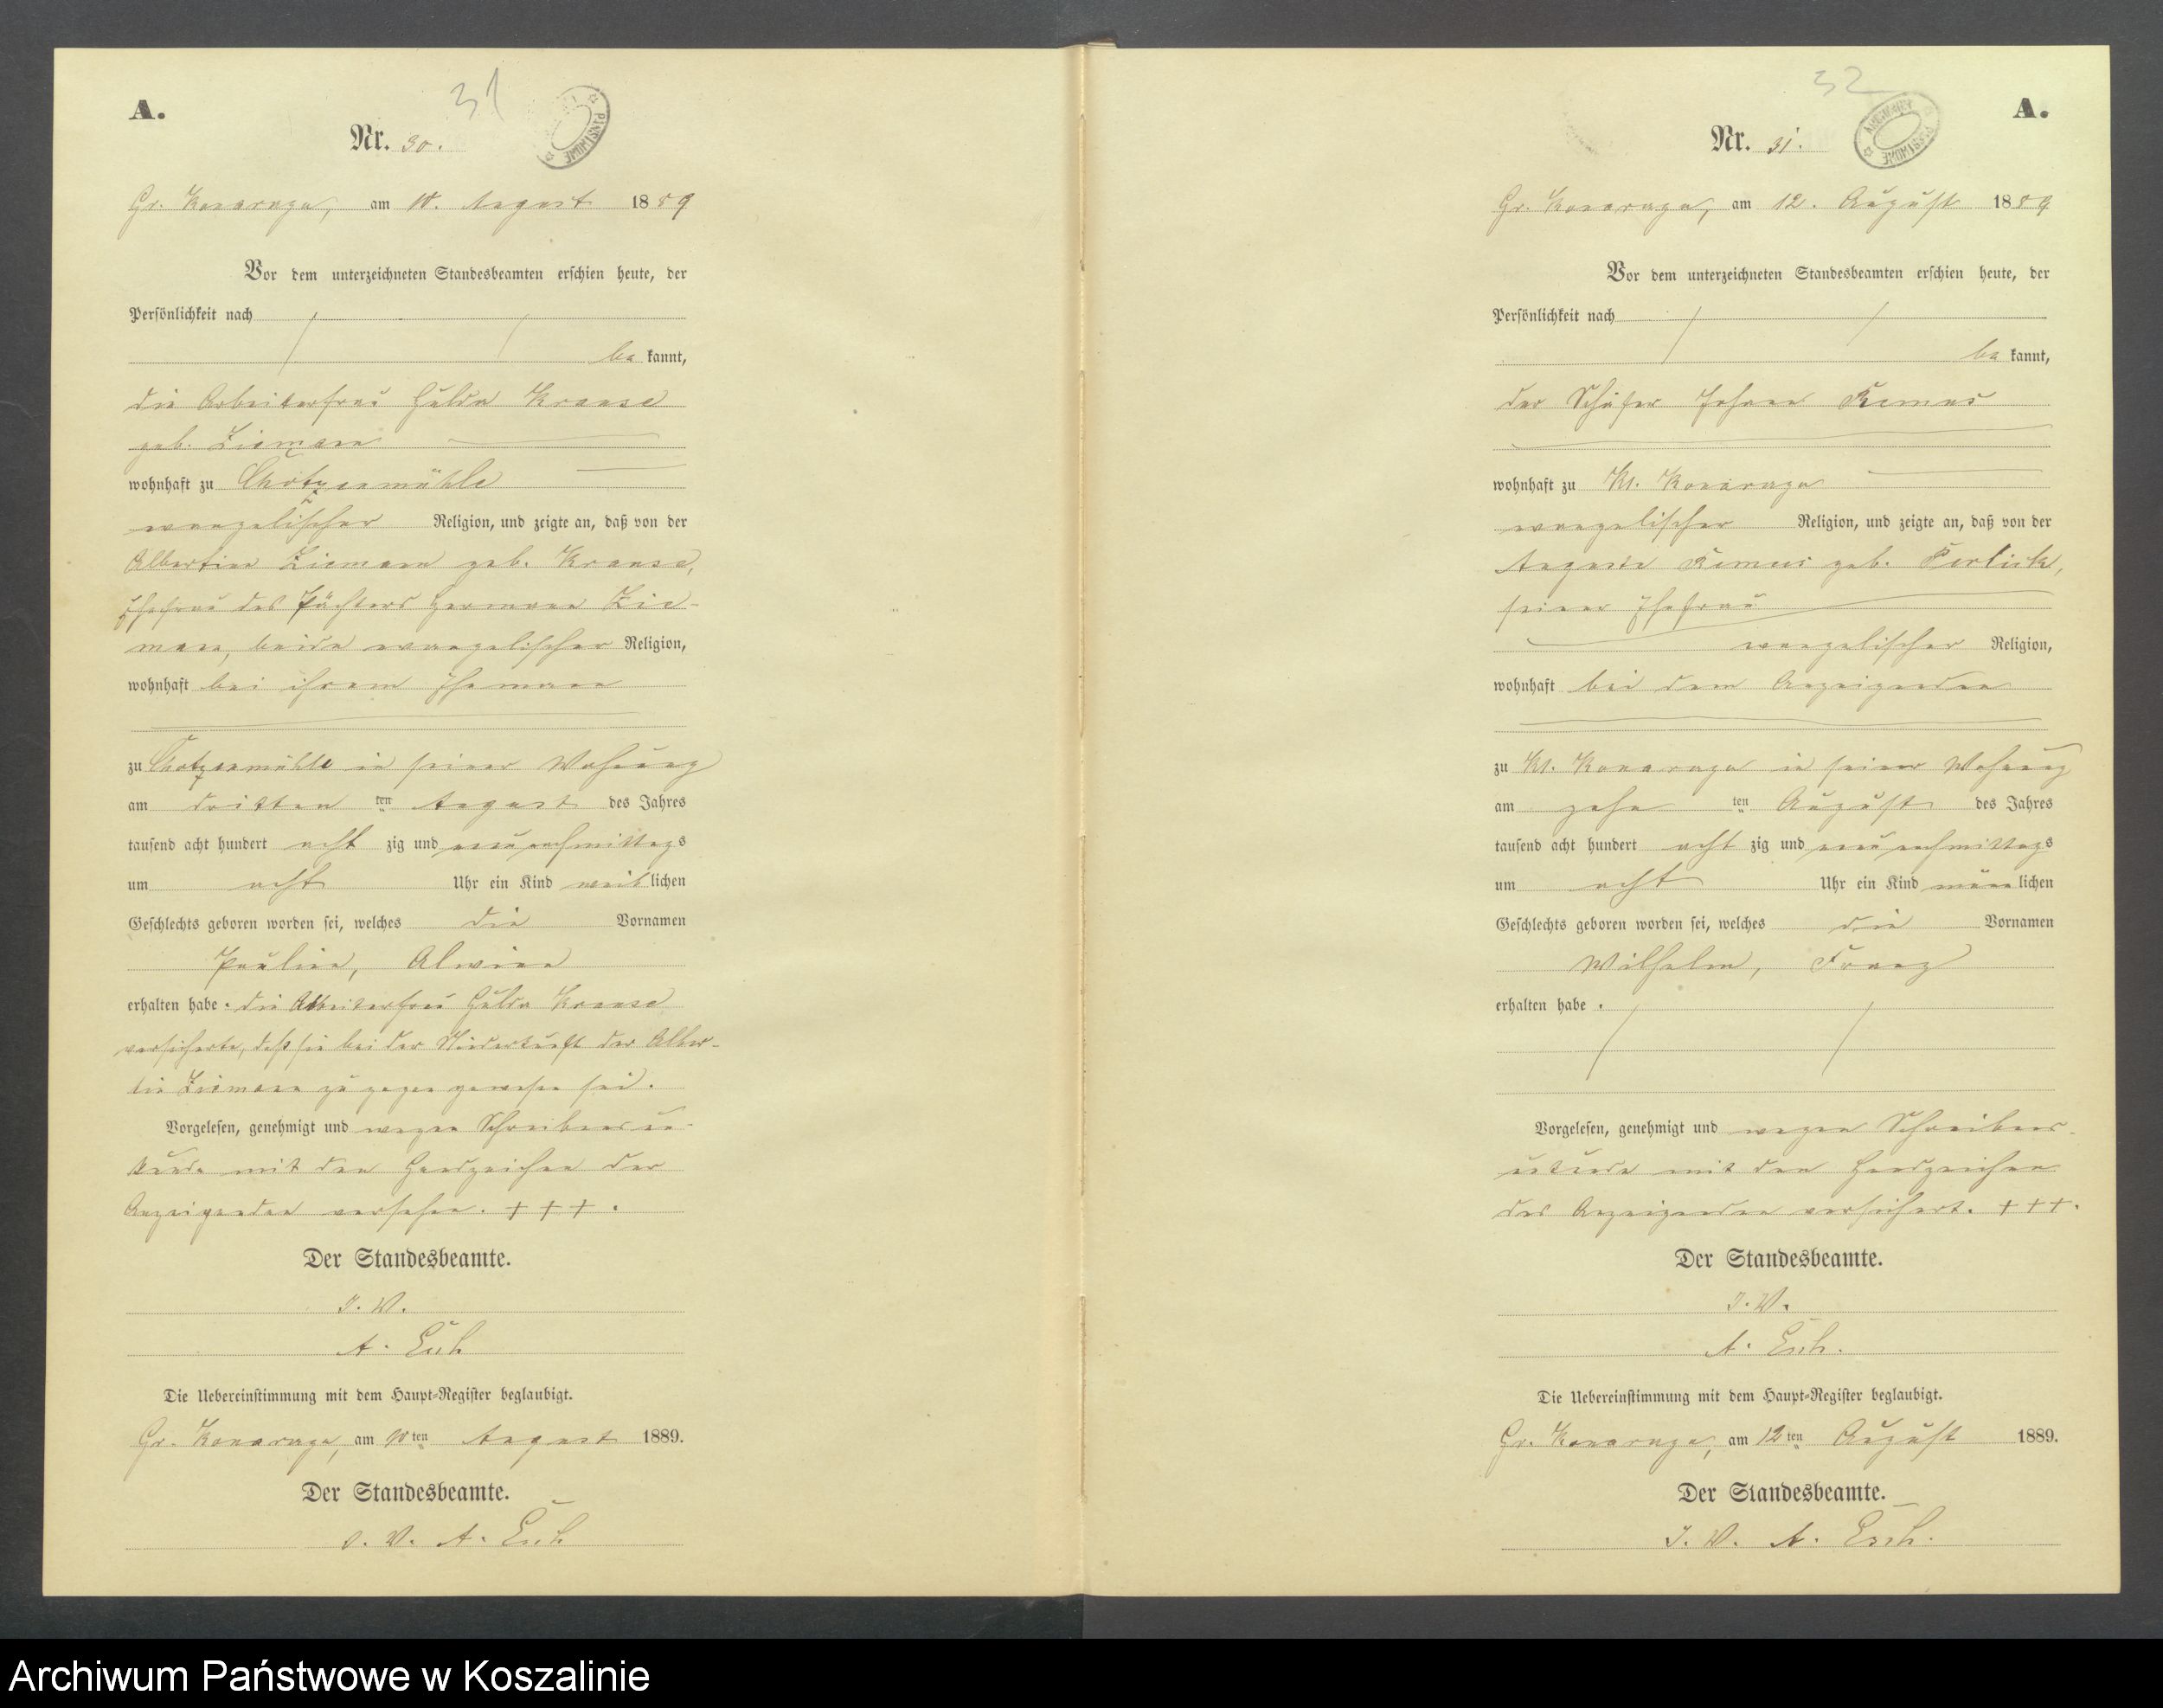 A.
31
Nr. 30.
Gr. Konarzyn, am 10. August 1889
Vor dem unterzeichneten Standesbeamten erschien heute, der
Persönlichkeit nach
be kannt,
die Arbeiterfrau Hulda Krause
geb. Ziemann
wohnhaft zu Chotzenmühle
evangelischer Religion, und zeigte an, daß von der
Albertine Ziemann geb. Krause,
Ehefrau des Pächters Hermann Zie-
mann, beide evangelischer Religion,
wohnhaft bei ihrem Ehemann
zu Chotzenmühle in seiner Wohnung
am dritten ten August des Jahres
tausend acht hundert acht zig und neun nachmittags
um acht Uhr ein Kind weib lichen
Geschlechts geboren worden sei, welches die Vornamen
Pauline, Alwine
erhalten habe. die Arbeiterfrau Hulda Krause
versicherte, daß sie bei der Niederkunft der Alber-
tine Ziemann zu gegen gewesen sei.
Vorgelesen, genehmigt und wegen Schreibensun-
kunde mit den Handzeichen der
Anzeigenden versehen. +++.
Der Standesbeamte.
I. V.
A.
Die Uebereinstimmung mit dem Haupt-Register beglaubigt.
Gr. Konarzyn, am 10ten August 1889.
Der Standesbeamte.
I. V. A.
32
A.
ARCHIWUM PAŃSTWOWE
Nr. 31.
Gr. Konarzyn, am 12. August 1889
Vor dem unterzeichneten Standesbeamten erschien heute, der
Persönlichkeit nach
be kannt,
der Schäfer Johann Remus
wohnhaft zu Kl. Konarzyn
evangelischer Religion, und zeigte an, daß von der
Auguste Remus geb. Perlick,
seiner Ehefrau
evangelischer Religion,
wohnhaft bei dem Anzeigenden
zu Kl. Konarzyn in seiner Wohnung
am zehn ten August des Jahres
tausend acht hundert acht zig und neun nachmittags
um acht Uhr ein Kind männ lichen
Geschlechts geboren worden sei, welches die Vornamen
Wilhelm, Franz
erhalten habe.
Vorgelesen, genehmigt und wegen Schreibens-
unkunde mit den Handzeichen
des Anzeigenden versichert. +++.
Der Standesbeamte.
I. V.
A.
Die Uebereinstimmung mit dem Haupt-Register beglaubigt.
Gr. Konarzyn, am 12ten August 1889.
Der Standesbeamte.
I. V. A.
Archiwum Państwowe w Koszalinie